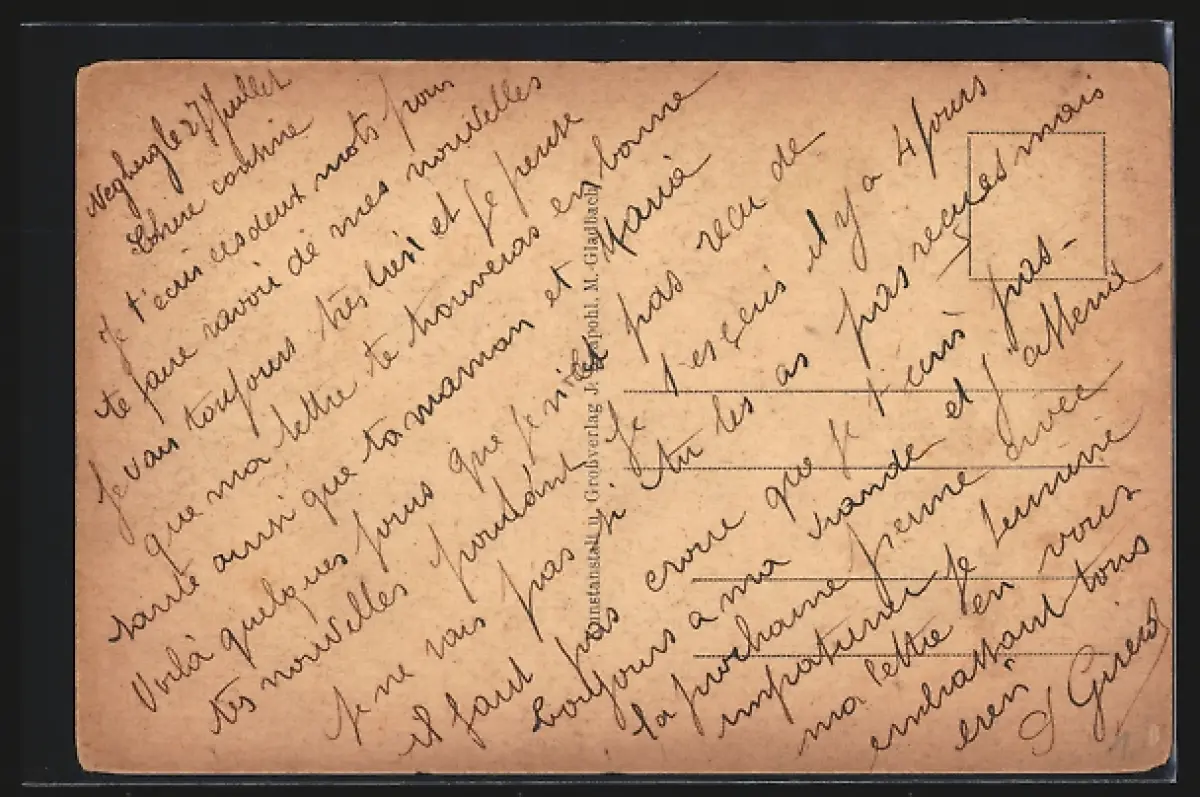 le 27 Juillet
Chère cousine
Je t'ecris ces deux mots pour
te faire savoir de mes nouvelles
Je vais toujours très bien et je pense
que ma lettre te trouveras en bonne
santé ainsi que ta maman et Maria
Voilà quelques jours que je n'ai pas recu de
tes nouvelles pourtant je t'es écris il y a 4 jours
Je ne sais pas si tu les as pas recues mais
il faut pas croire que je t'ecris pas-
toujours a ma viande et j'attend
la prochaine avec
je termine
ma lettre en vous
embrassant tous
Kunstanstalt u. Großverlag J. M. Gladbach